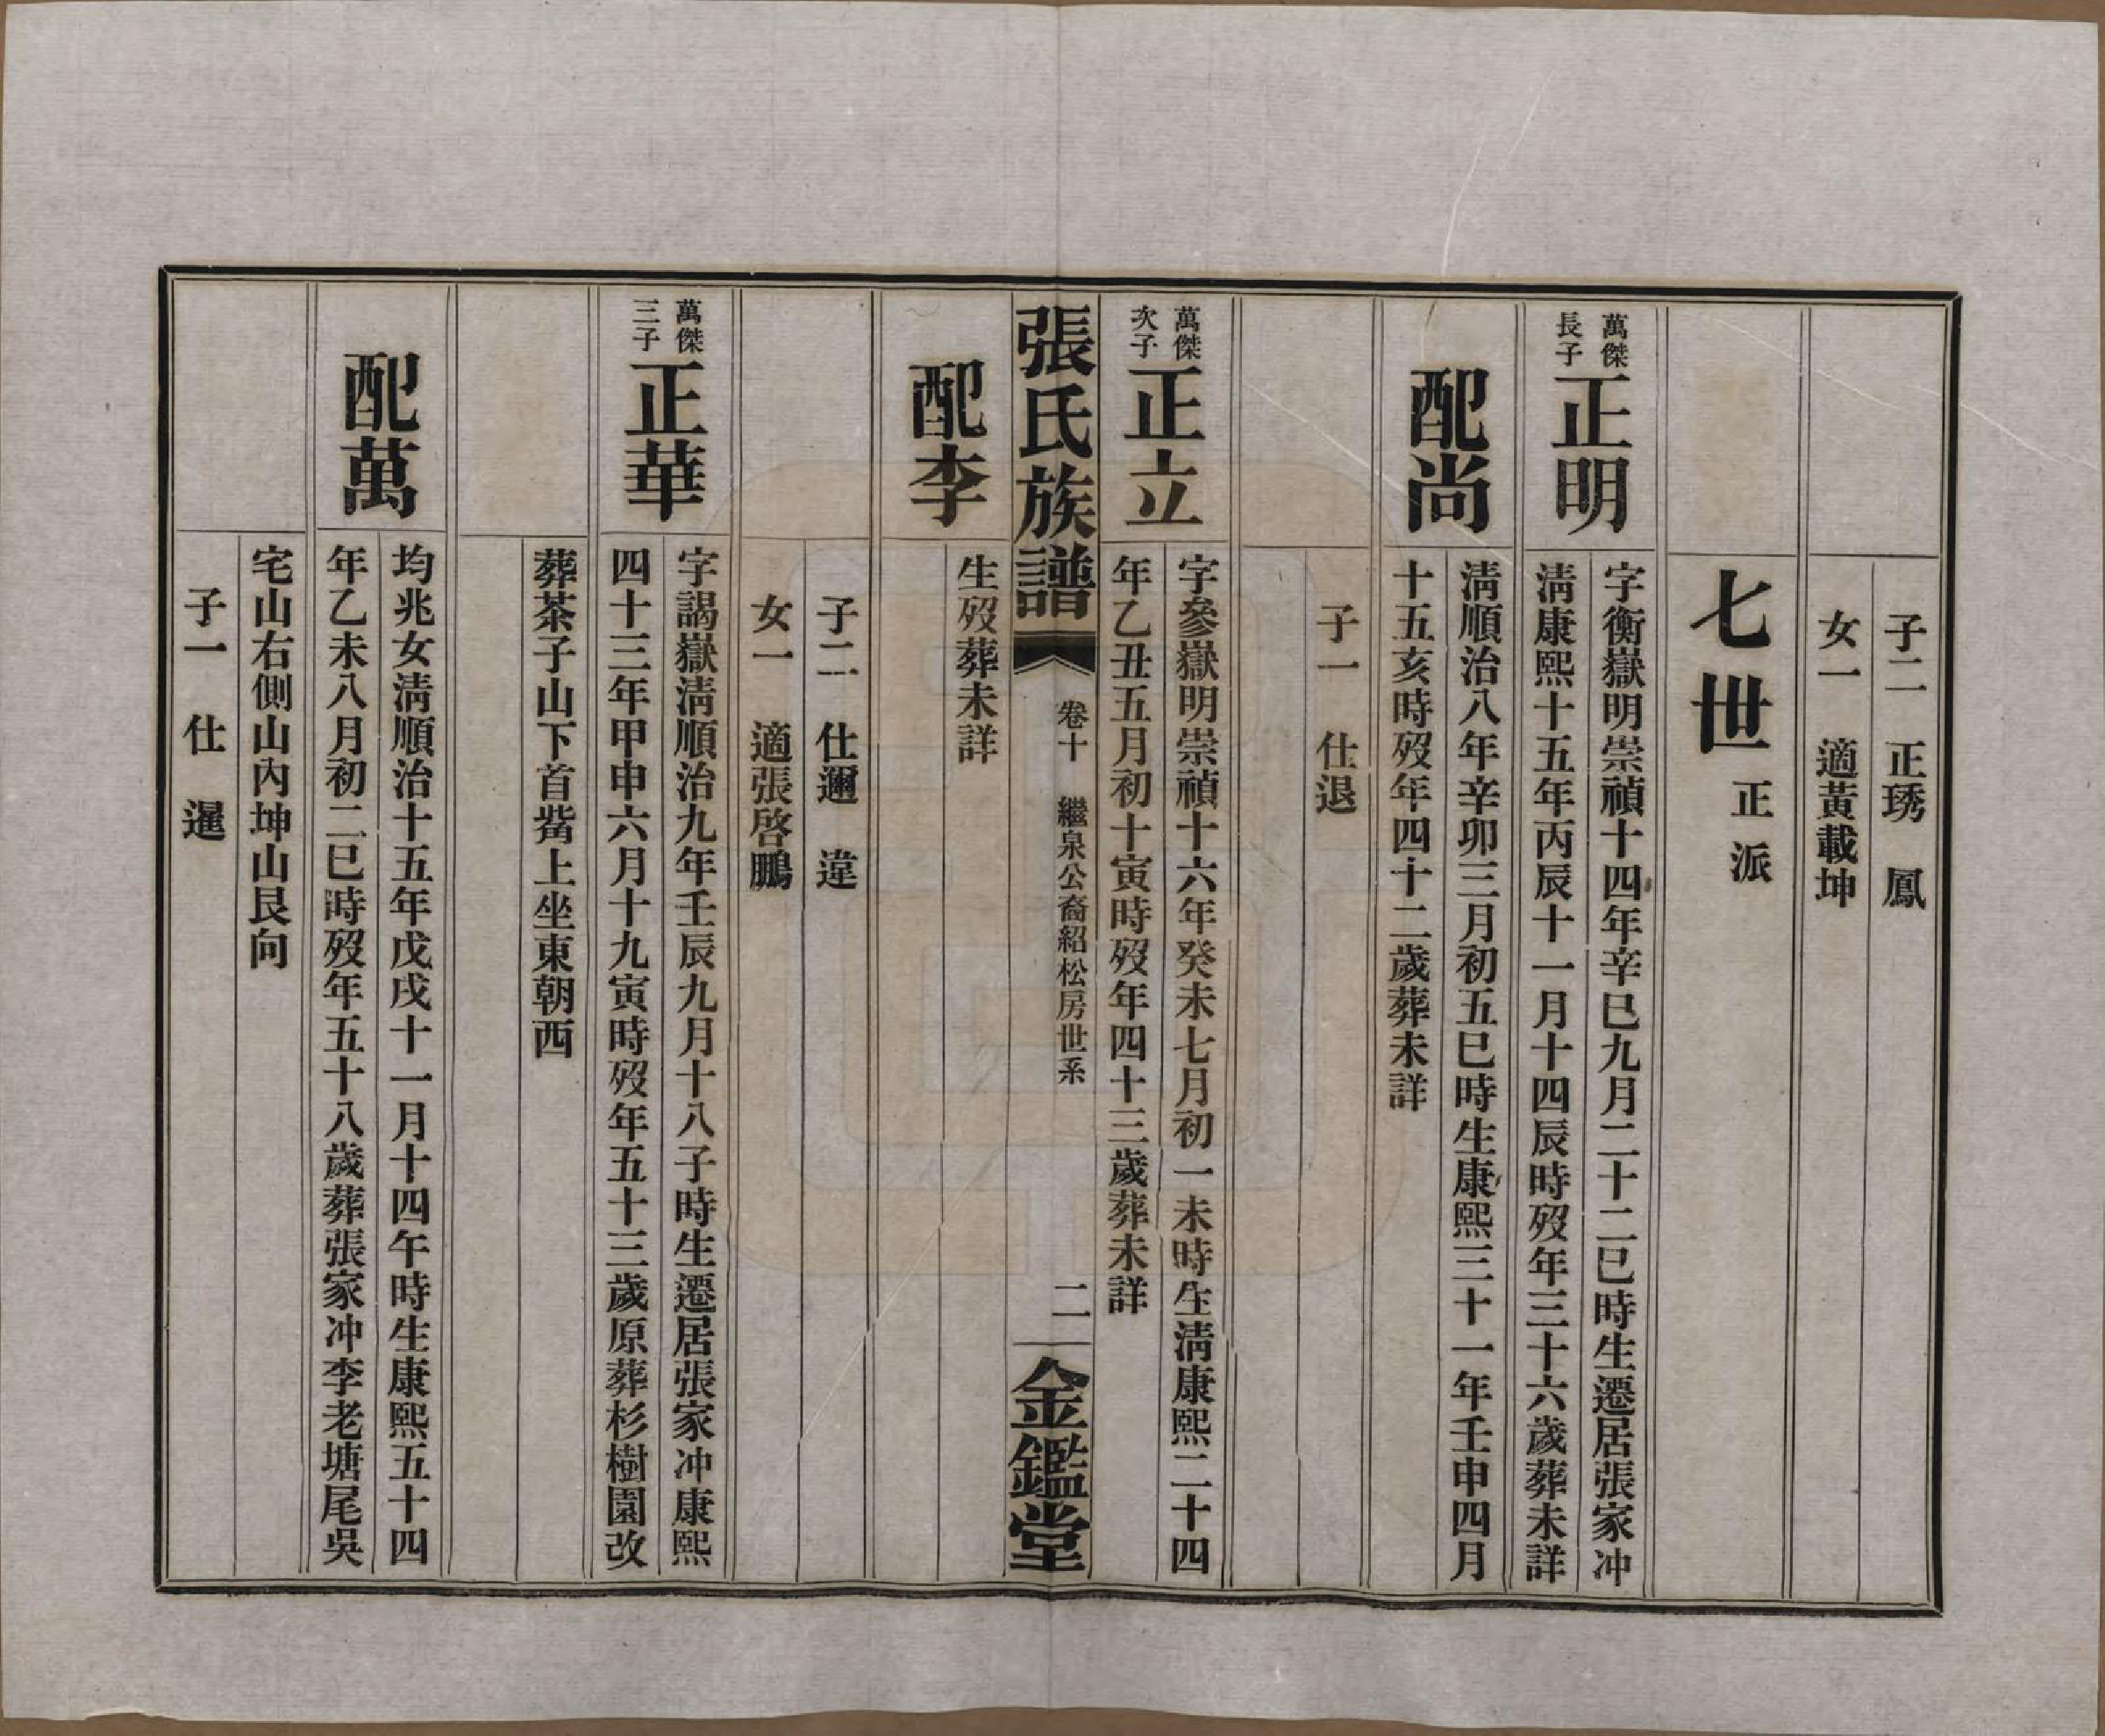 子二　正琇　鳳
女一　適黃載坤
七世正派
萬傑
長子
正明
字衡嶽明崇禎十四年辛巳九月二十二巳時生遷居張家冲
淸康熙十五年丙辰十一月十四辰時歿年三十六歲葬未詳
配尚
淸順治八年辛卯三月初五巳時生康熙三十一年壬申四月
十五亥時歿年四十二歲葬未詳
子一　仕退
萬傑
次子
正立
字參嶽明崇禎十六年癸未七月初一未時生淸康熙二十四
年乙丑五月初十寅時歿年四十三歲葬未詳
張氏族譜
卷十　繼泉公裔紹松房世系
二
金鑑堂
配李
生歿葬未詳
子二　仕邇　違
女一　適張啓鵬
萬傑
三子
正華
字謁嶽淸順治九年壬辰九月十八子時生遷居張家冲康熙
四十三年甲申六月十九寅時歿年五十三歲原葬杉樹園改
葬茶子山下首觜上坐東朝西
配萬
均兆女淸順治十五年戊戌十一月十四午時生康熙五十四
年乙未八月初二巳時歿年五十八歲葬張家冲李老塘尾吳
宅山右側山內坤山艮向
子一　仕　暹